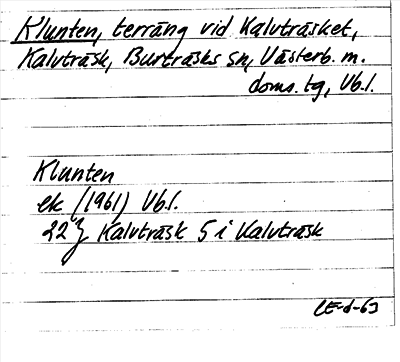 Klunten, terräng vid Kalvträsket,
Kalvträsk, Burträsks sn, Västerb. m.
doms. tg, Vb.l.
Klunten
ek (1961) Vb.l.
22 J Kalvträsk 5 i Kalvträsk
CE-d-63